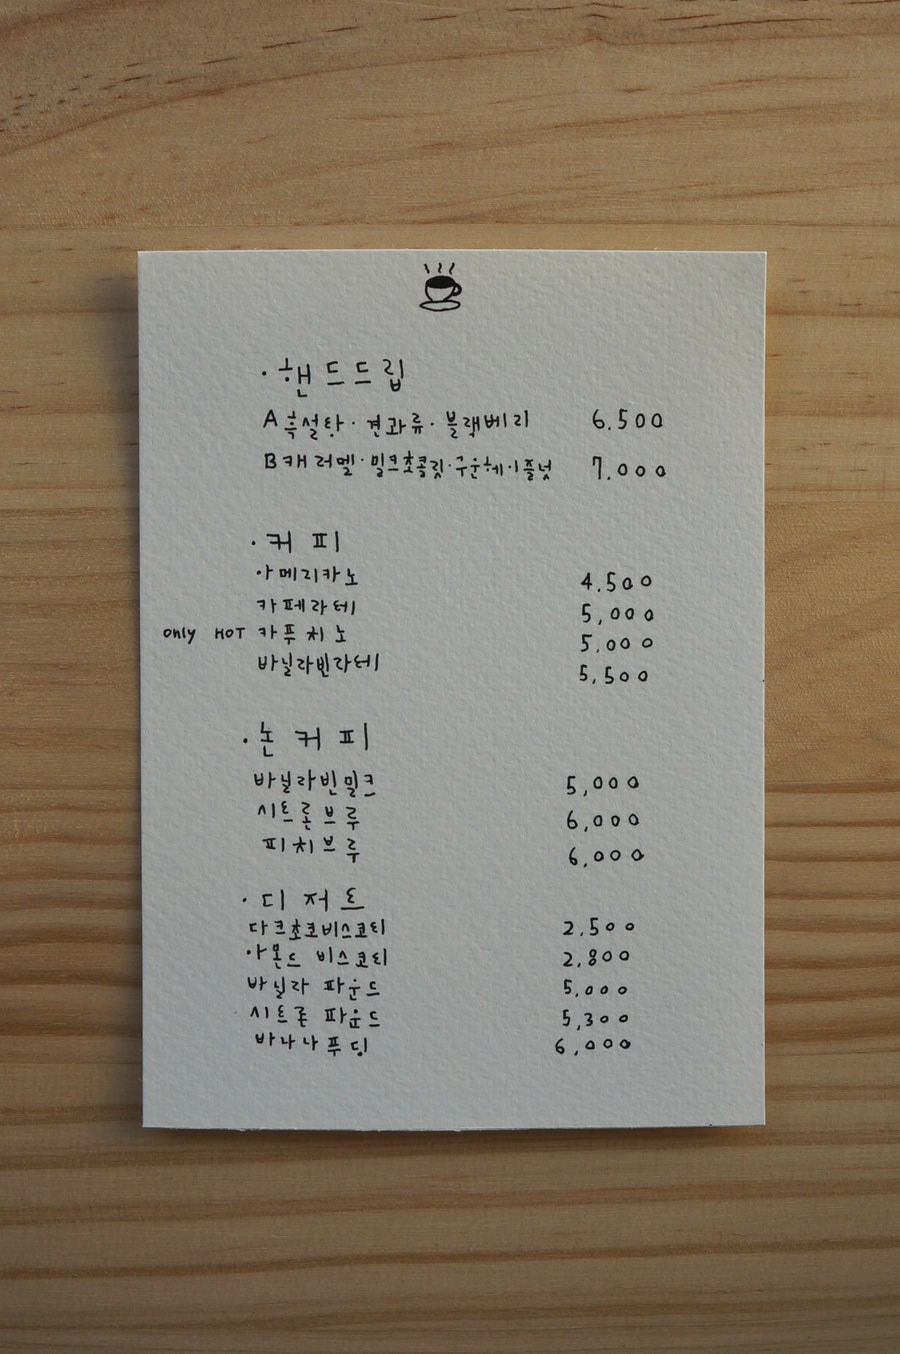 · 핸드드립
A 흑설탕 · 견과류 · 블랙베리 6.500
B 캐러멜 · 밀크초콜릿 · 구운헤이즐넛 7.000
· 커피
아메리카노 4.500
카페라테 5,000
only HOT 카푸치노 5.000
바닐라빈라테 5,500
· 논커피
바닐라빈밀크 5,000
시트론브루 6,000
피치브루 6,000
· 디저트
다크초코비스코티 2,500
아몬드 비스코티 2,800
바닐라 파운드 5,000
시트론 파운드 5,300
바나나푸딩 6,000